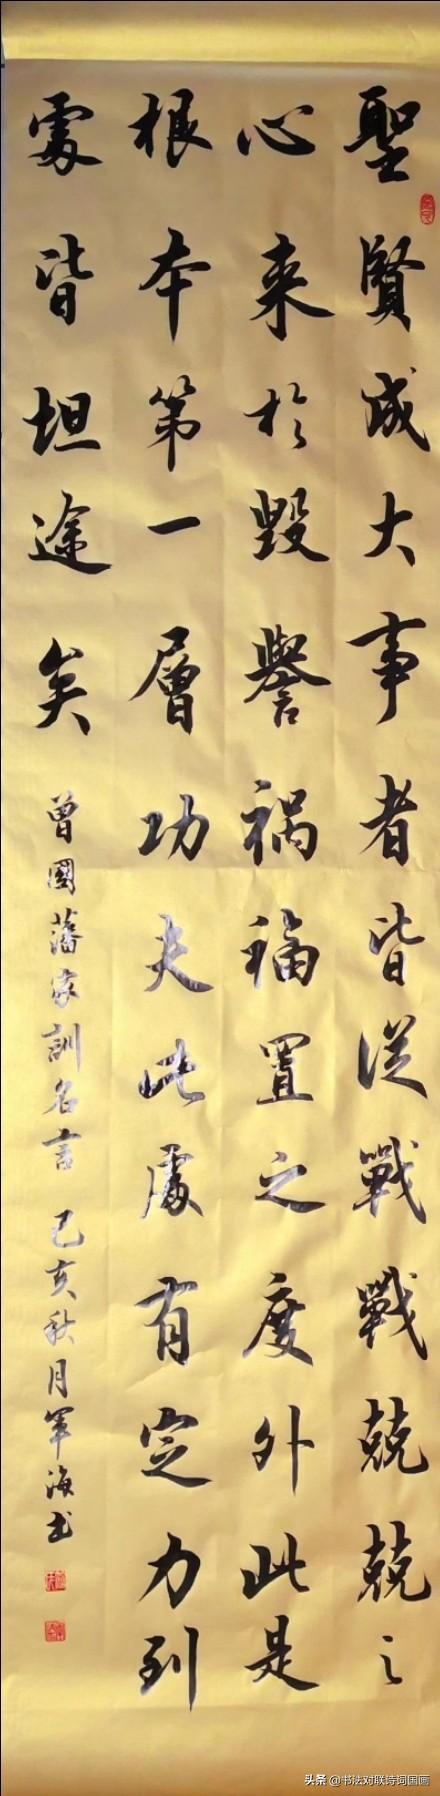 聖賢成大事者皆從戰戰兢兢之
心来於毀譽祸福置之度外此是
根本第一層功夫此處有定力到
處皆坦途矣
曾國藩家訓名言 己亥秋月軍海书
头条 @书法对联诗词国画